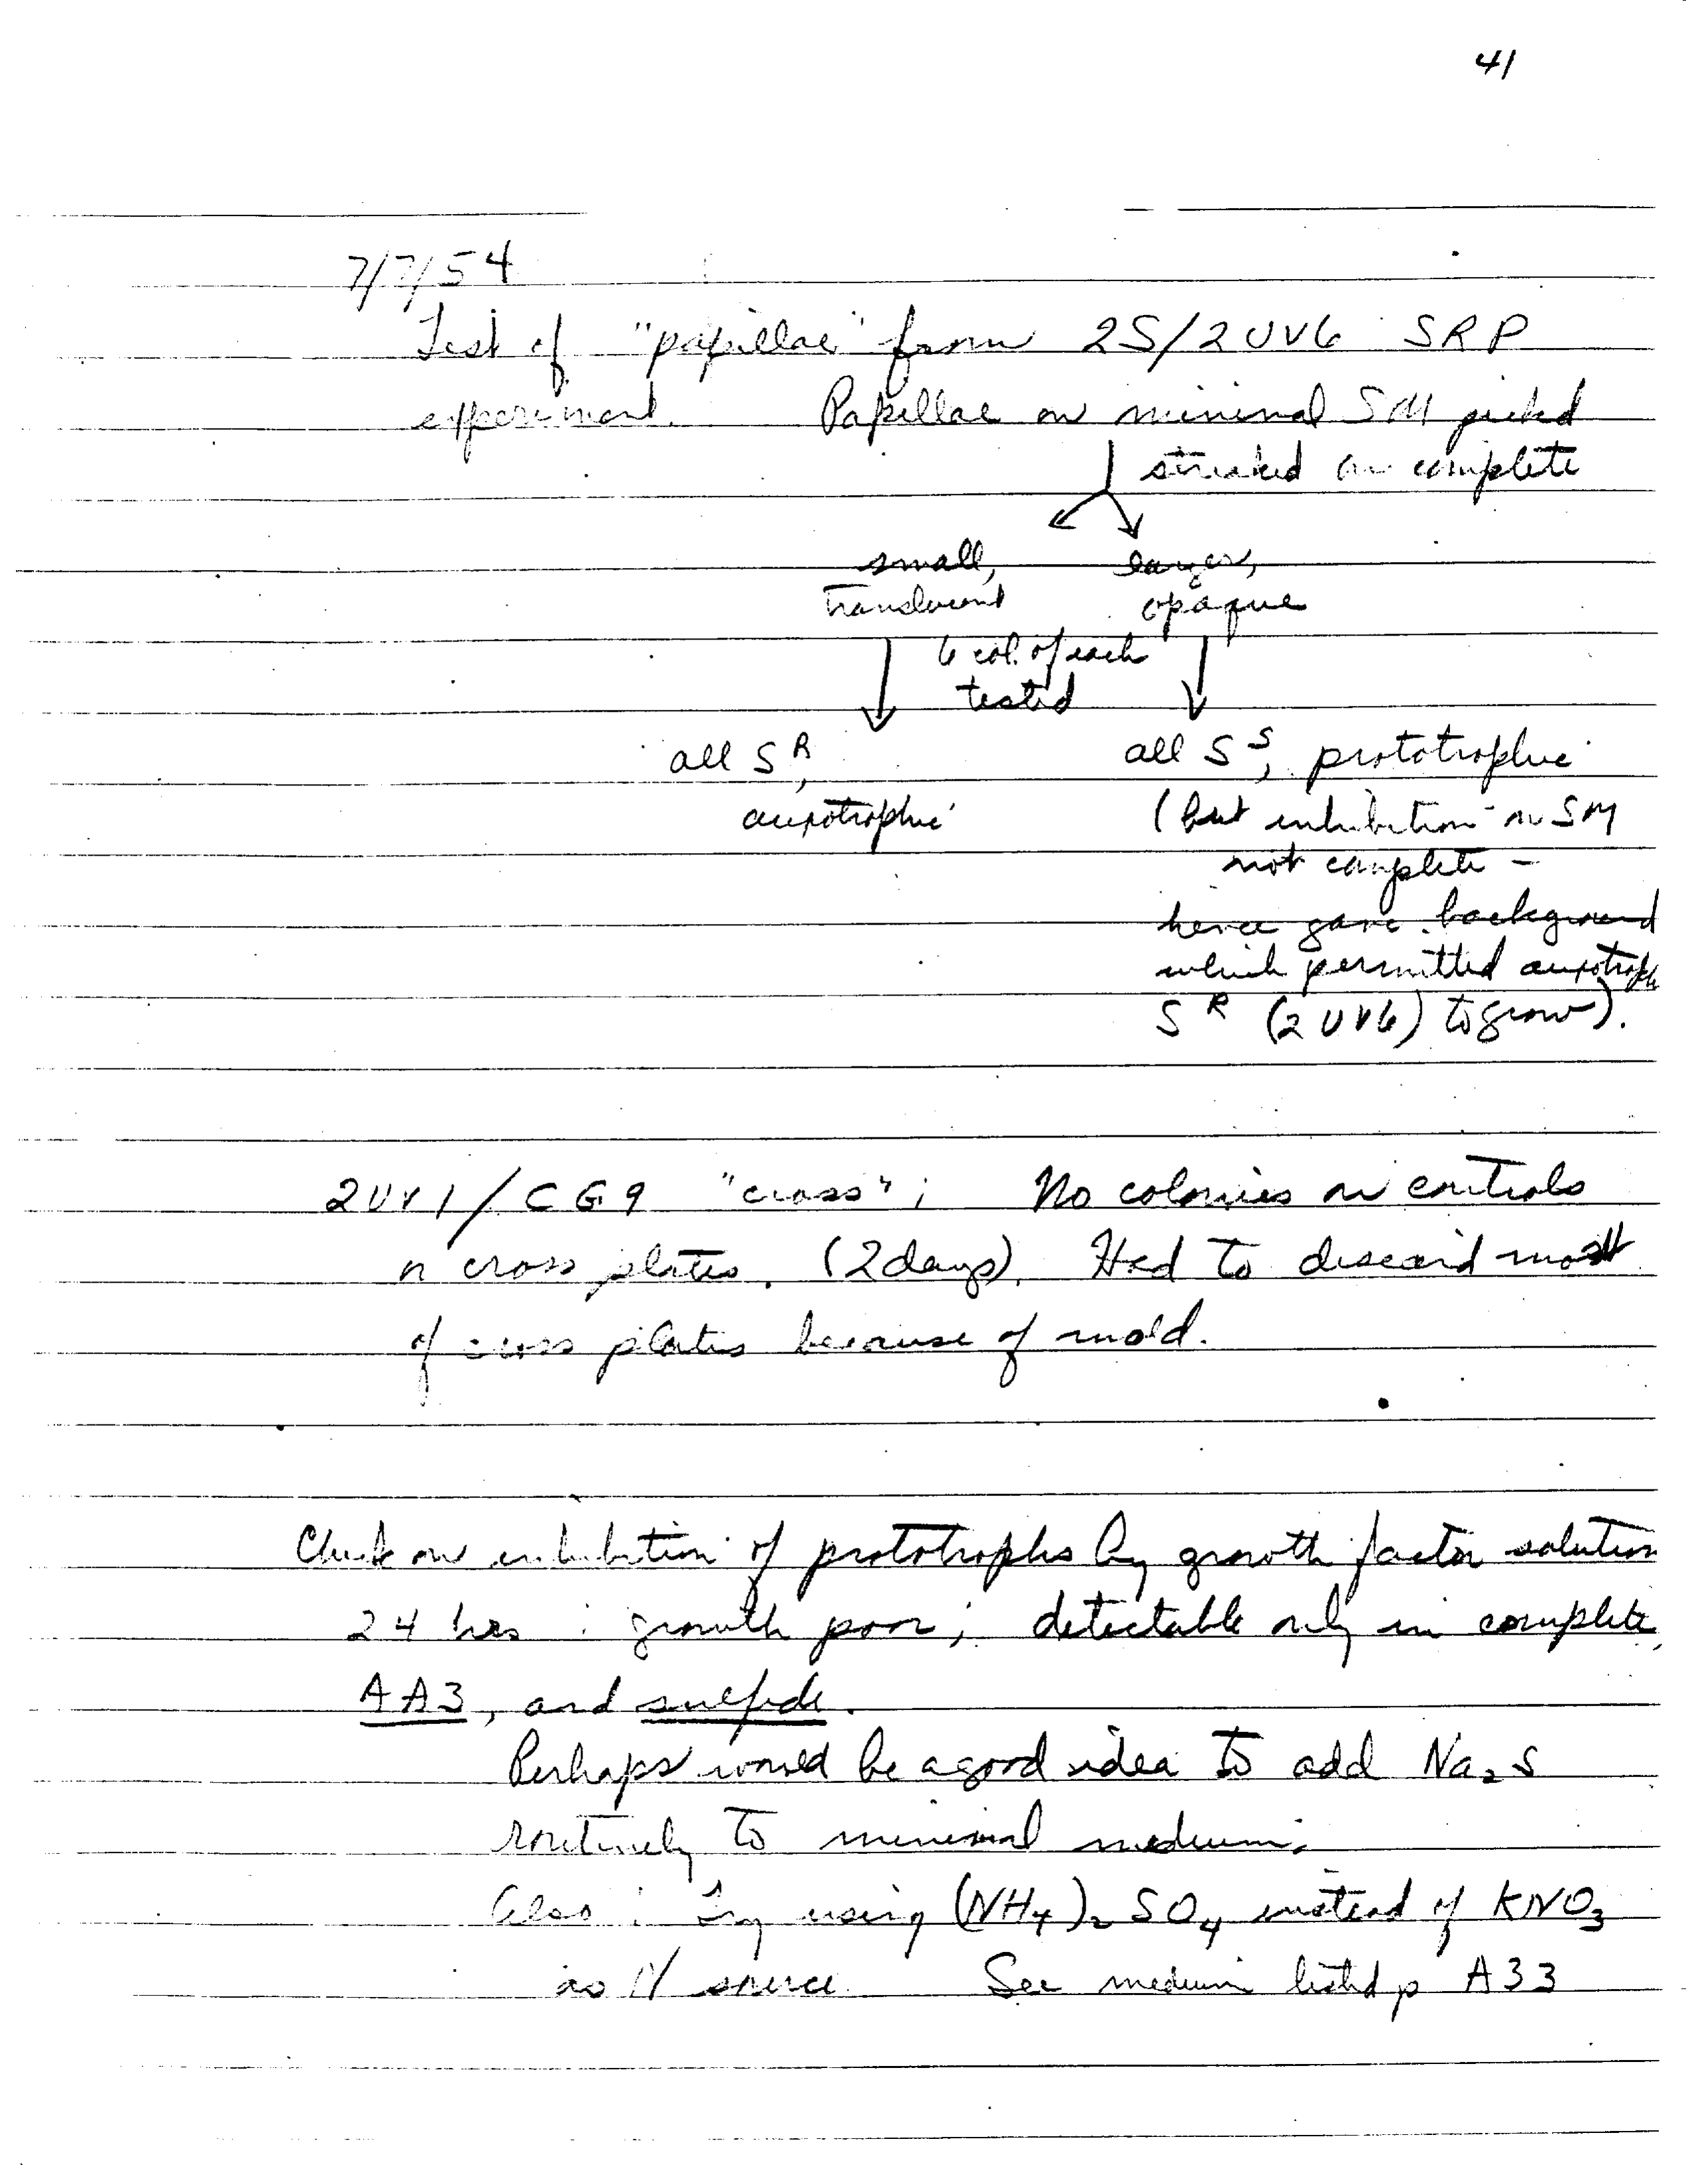 41
7/7/54
Test of "papillae" from 2S/2UV6 SRP
experiment. Papillae on minimal SM picked
streaked on complete
small, larger,
translucent opaque
6 col. of each
tested
all S^R, all S^S, prototrophic
auxotrophic (but inhibition on SM
not complete –
hence gave background
which permitted auxotroph
S^R (2UV6) to grow).
2UV1/CG9 "cross"; No colonies on controls
or cross plates. (2 days). Had to discard most
of cross plates because of mold.
Check on inhibition of prototrophs by growth factor solution
24 hrs : growth poor; detectable only in complete,
AA3, and sulfide.
Perhaps would be a good idea to add Na₂S
routinely to minimal medium.
Also : Try using (NH₄)₂SO₄ instead of KNO₃
as N source. See medium listed p A33